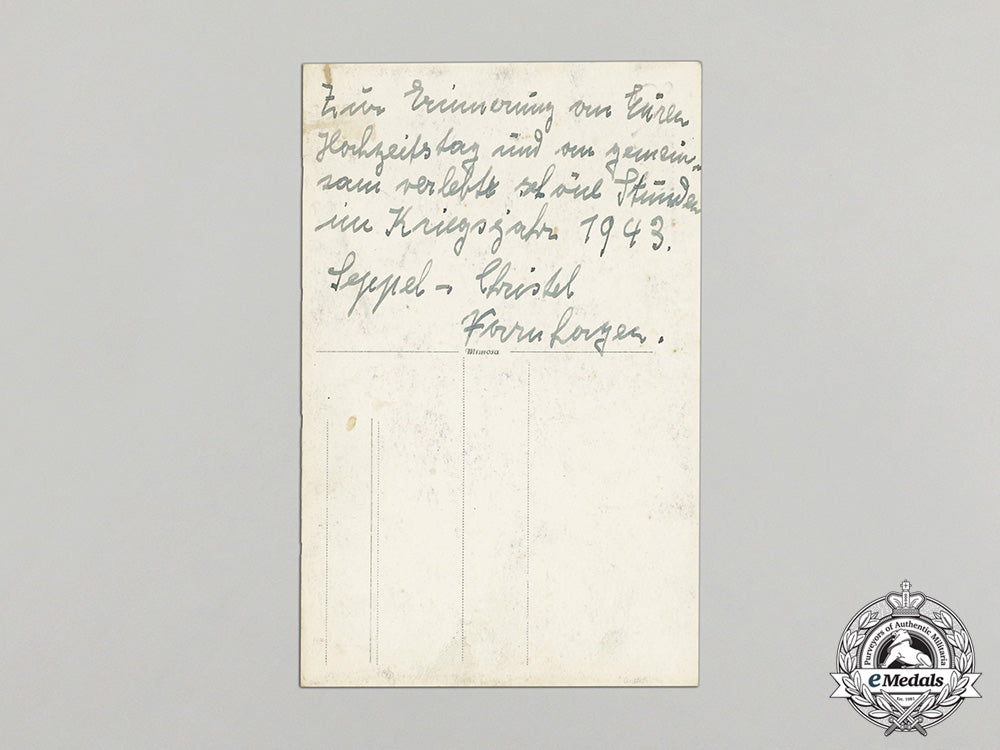 Zur Erinnerung an Euren
Hochzeitstag und an gemein-
sam verlebte schöne Stunden
im Kriegsjahr 1943.
Seppel - Christel
Mimosa
Purveyors of Authentic Militaria
eMedals
Est. 1985